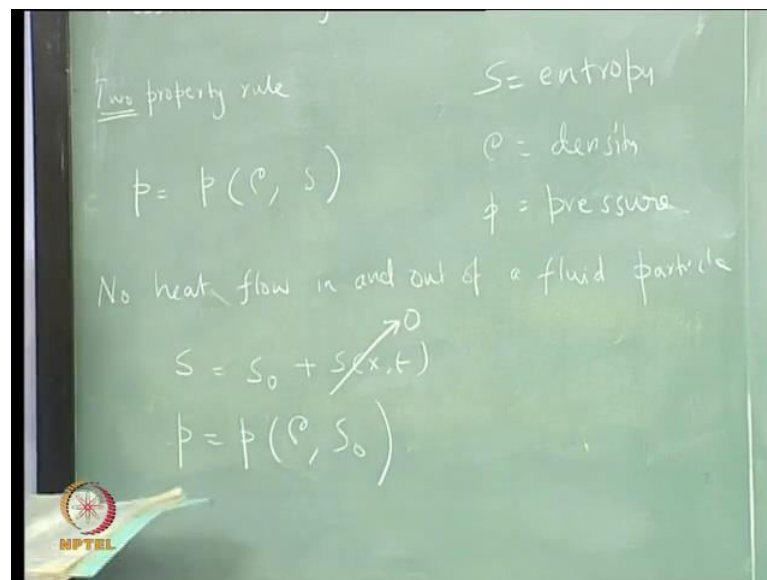 Two property rule
S = entropy
p = p(ρ, s)
ρ = density
p = pressure
No heat flow in and out of a fluid particle
0
s = s₀ + s(x,t)
p = p(ρ, s₀)
NPTEL